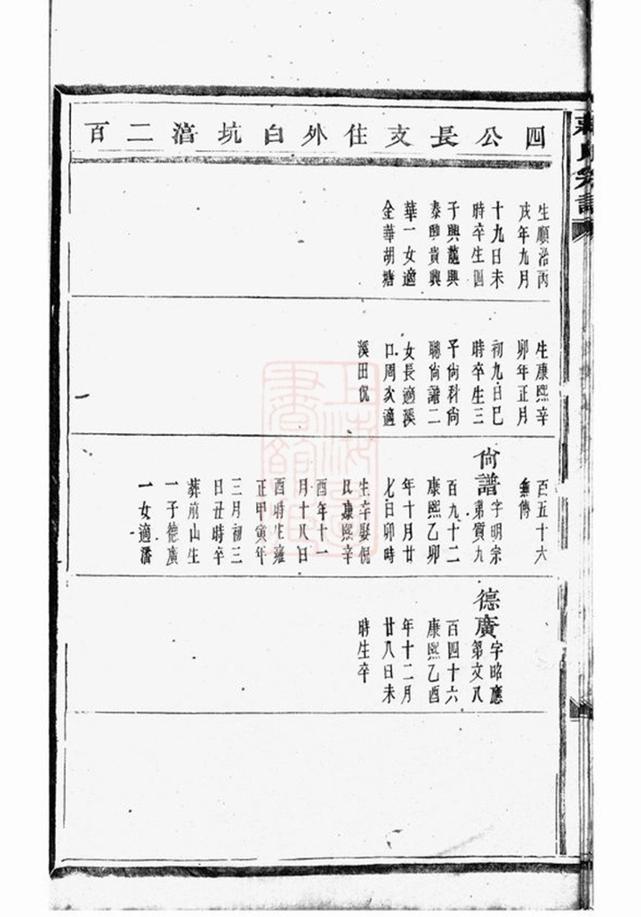 四公長支住外白坑滀二百
生順治丙
戌年九月
十九日未
時卒生四
子興龍興
泰興貴興
華一女適
金華胡塘
生康熙辛
卯年正月
初九日巳
時卒生三
子尙科尙
聰尙譜二
女長適溪
口周次適
溪田倪
百五十六
無傳
尙譜字明宗
弟質九
百九十二
康熙乙卯
年十月廿
七日卯時
生卒娶倪
氏康熙辛
酉年十一
月十八日
酉時生雍
正甲寅年
三月初三
日丑時卒
葬前山生
一子德廣
一女適潘
德廣字昭應
第文八
百四十六
康熙乙酉
年十二月
廿八日未
時生卒